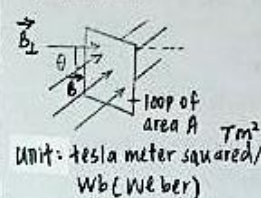 B⊥
θ
B
loop of
area A
Tm²
Unit: tesla meter squared/
Wb (Weber)